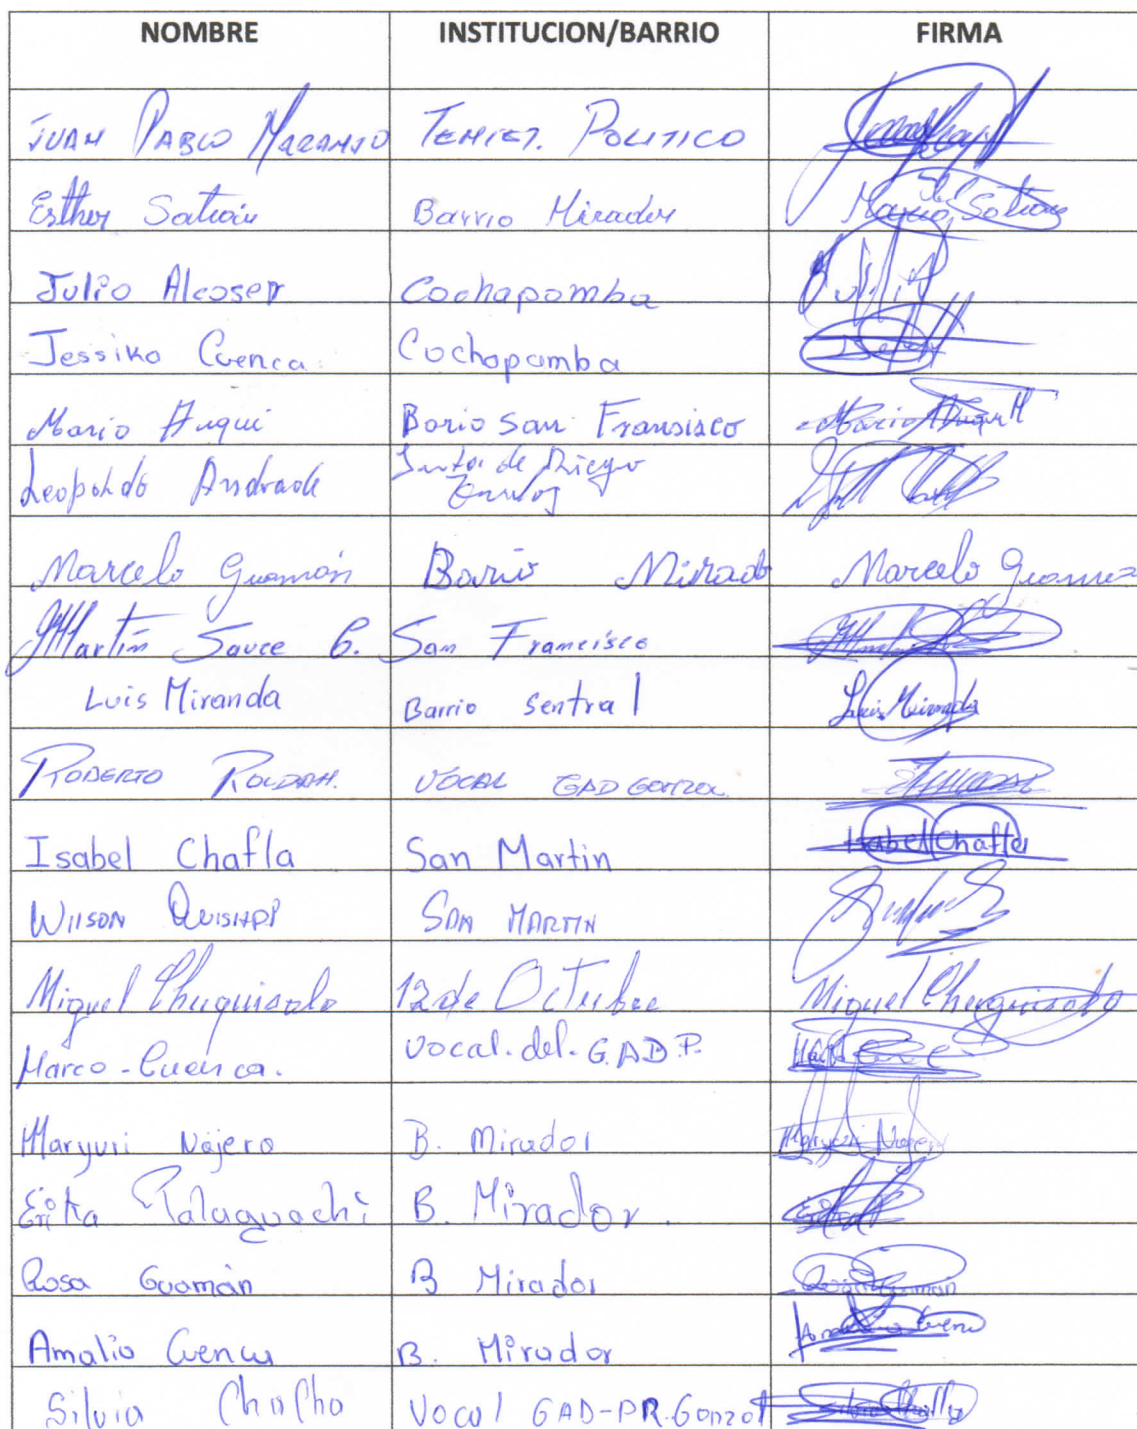 NOMBRE INSTITUCION/BARRIO FIRMA
JUAN PABLO NARANJO TENIET. POLITICO
Esther Satian Barrio Mirador
Julio Alcoser Cochapomba
Jessika Cuenca Cochapamba
Mario Auqui Bario san Fransisco Mario Auqui
Leopoldo Andrade Junta de Riego
Marcelo Guamán Barrio Mirado Marcelo Guaman
Martín Sauce G. San Francisco
Luis Miranda Barrio sentral Luis Miranda
ROBERTO ROLDAN. VOCAL GAD GONZOL
Isabel Chafla San Martin Isabel Chafla
WILSON QUISHPI SAN MARTIN
Miguel Chuquisala 12 de Octubre Miguel Chuquisala
Marco - Cuenca. Vocal. del. G.AD P.
Maryuri Najera B. Mirador Maryuri Najera
Erika Palaguachi B. Mirador. Erika
Rosa Guamán B Mirador Rosa Guaman
Amalia Cuenca B. Mirador
Silvia Chafla Vocal GAD-PR.Gonzol Silvia Chafla